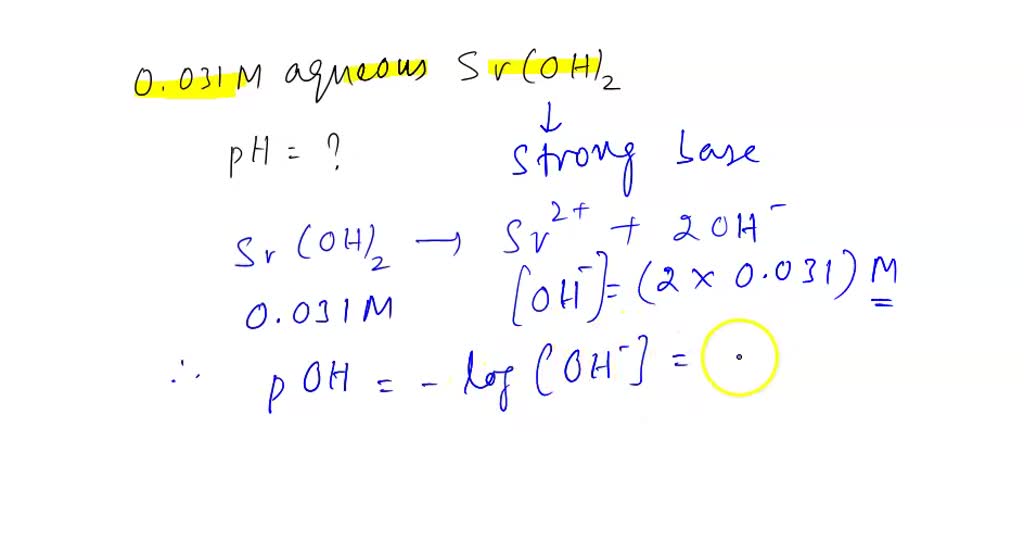 0.031M aqueous Sr(OH)₂
↓
pH = ? strong base
Sr(OH)₂ → Sr²⁺ + 2OH⁻
0.031M [OH⁻] = (2 × 0.031) M
∴ pOH = - log [OH⁻] =